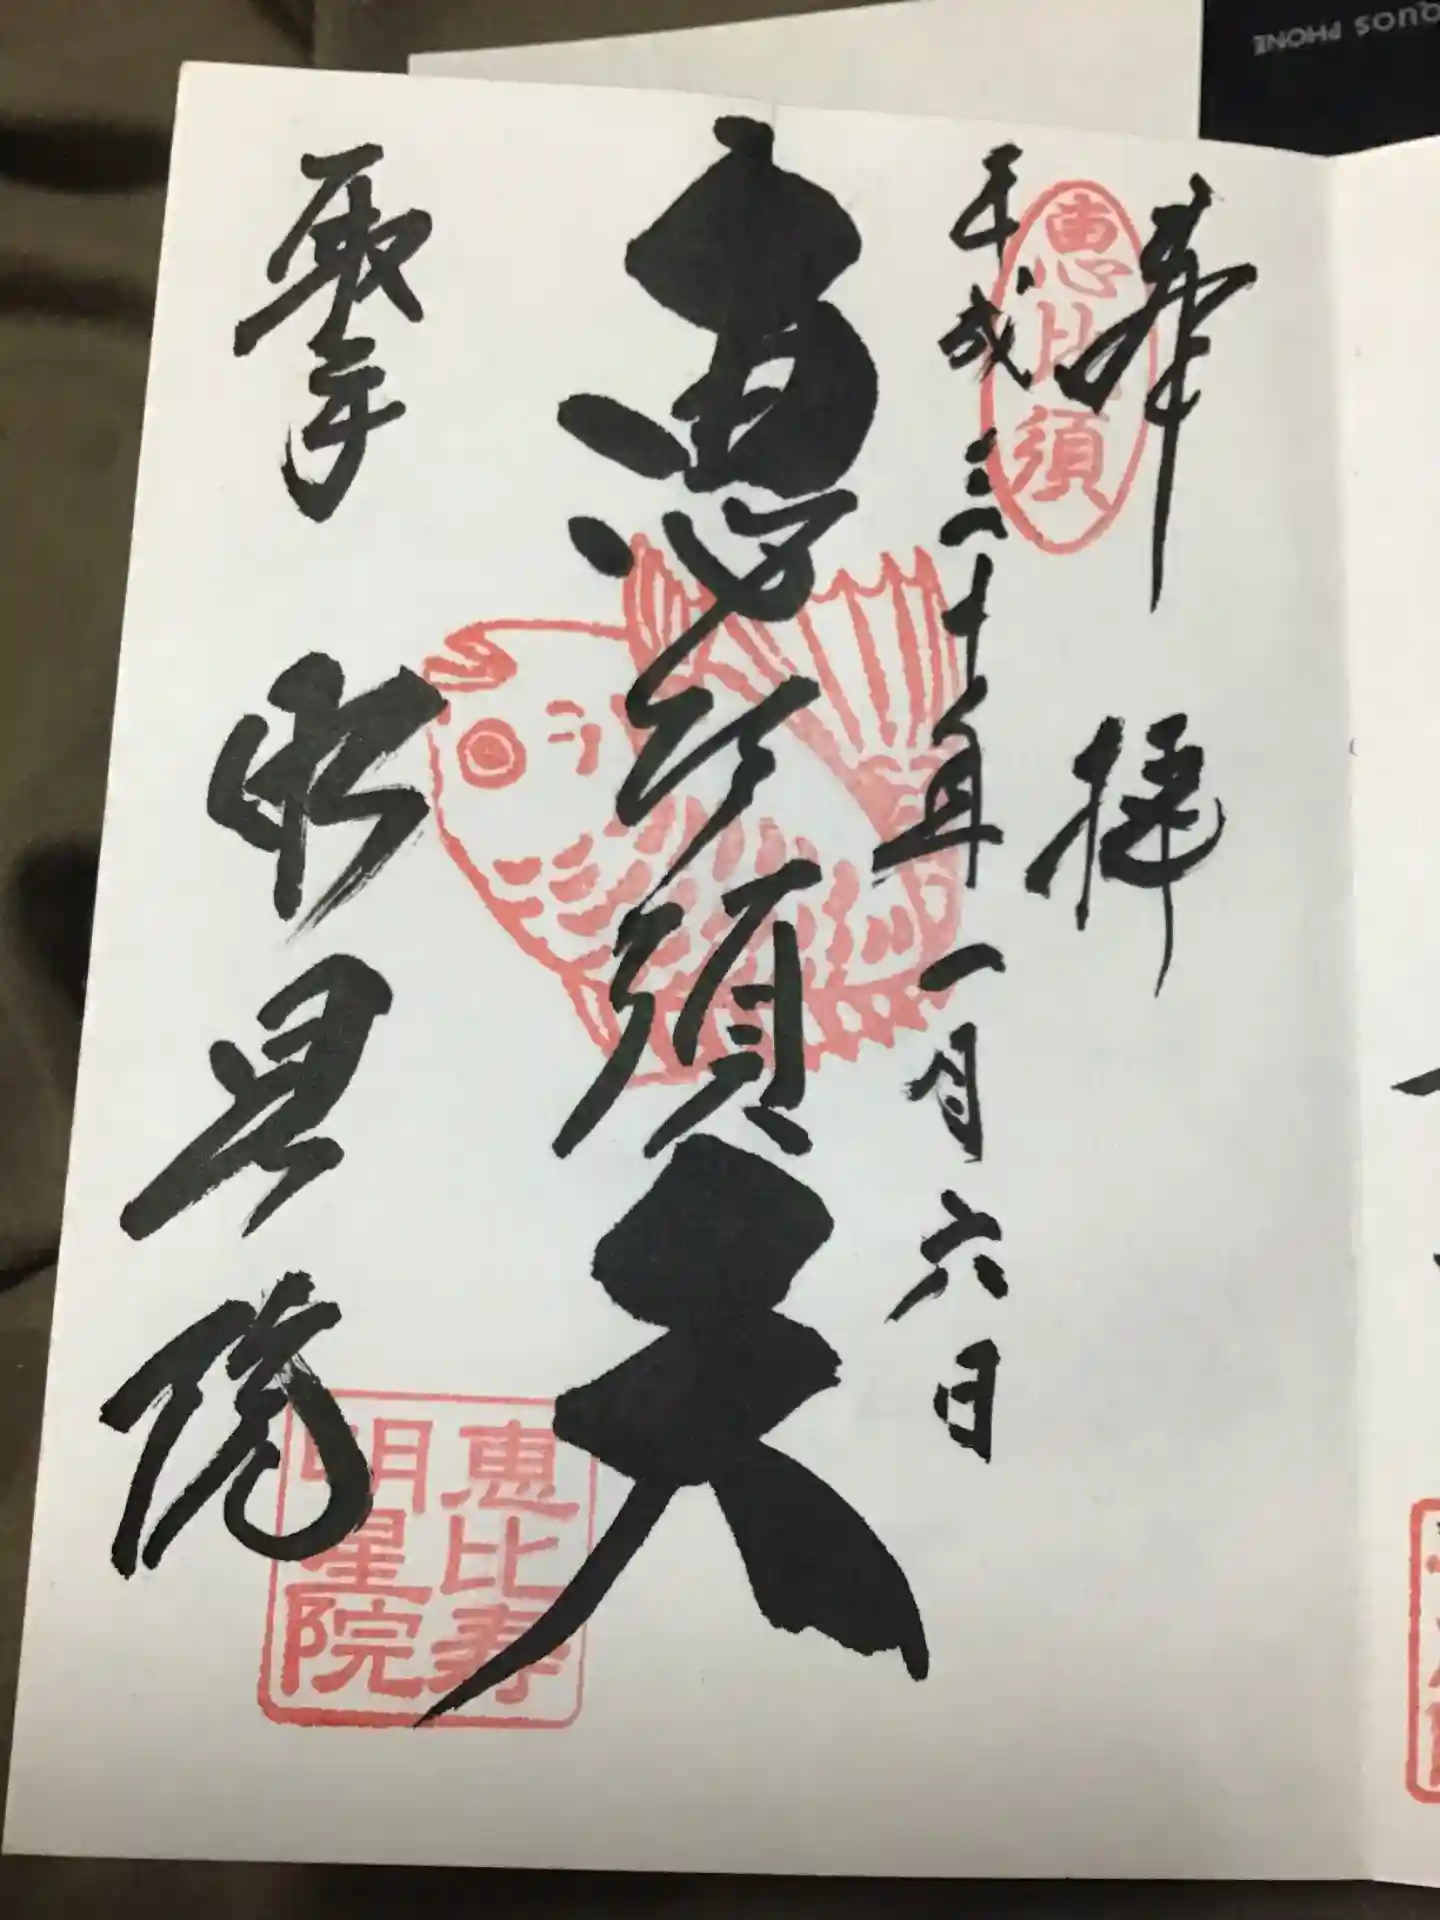 奉拝
恵比須
平成三十年一月六日
恵比須天
取手 明星院
恵比寿
明星院
QUOS PHONE